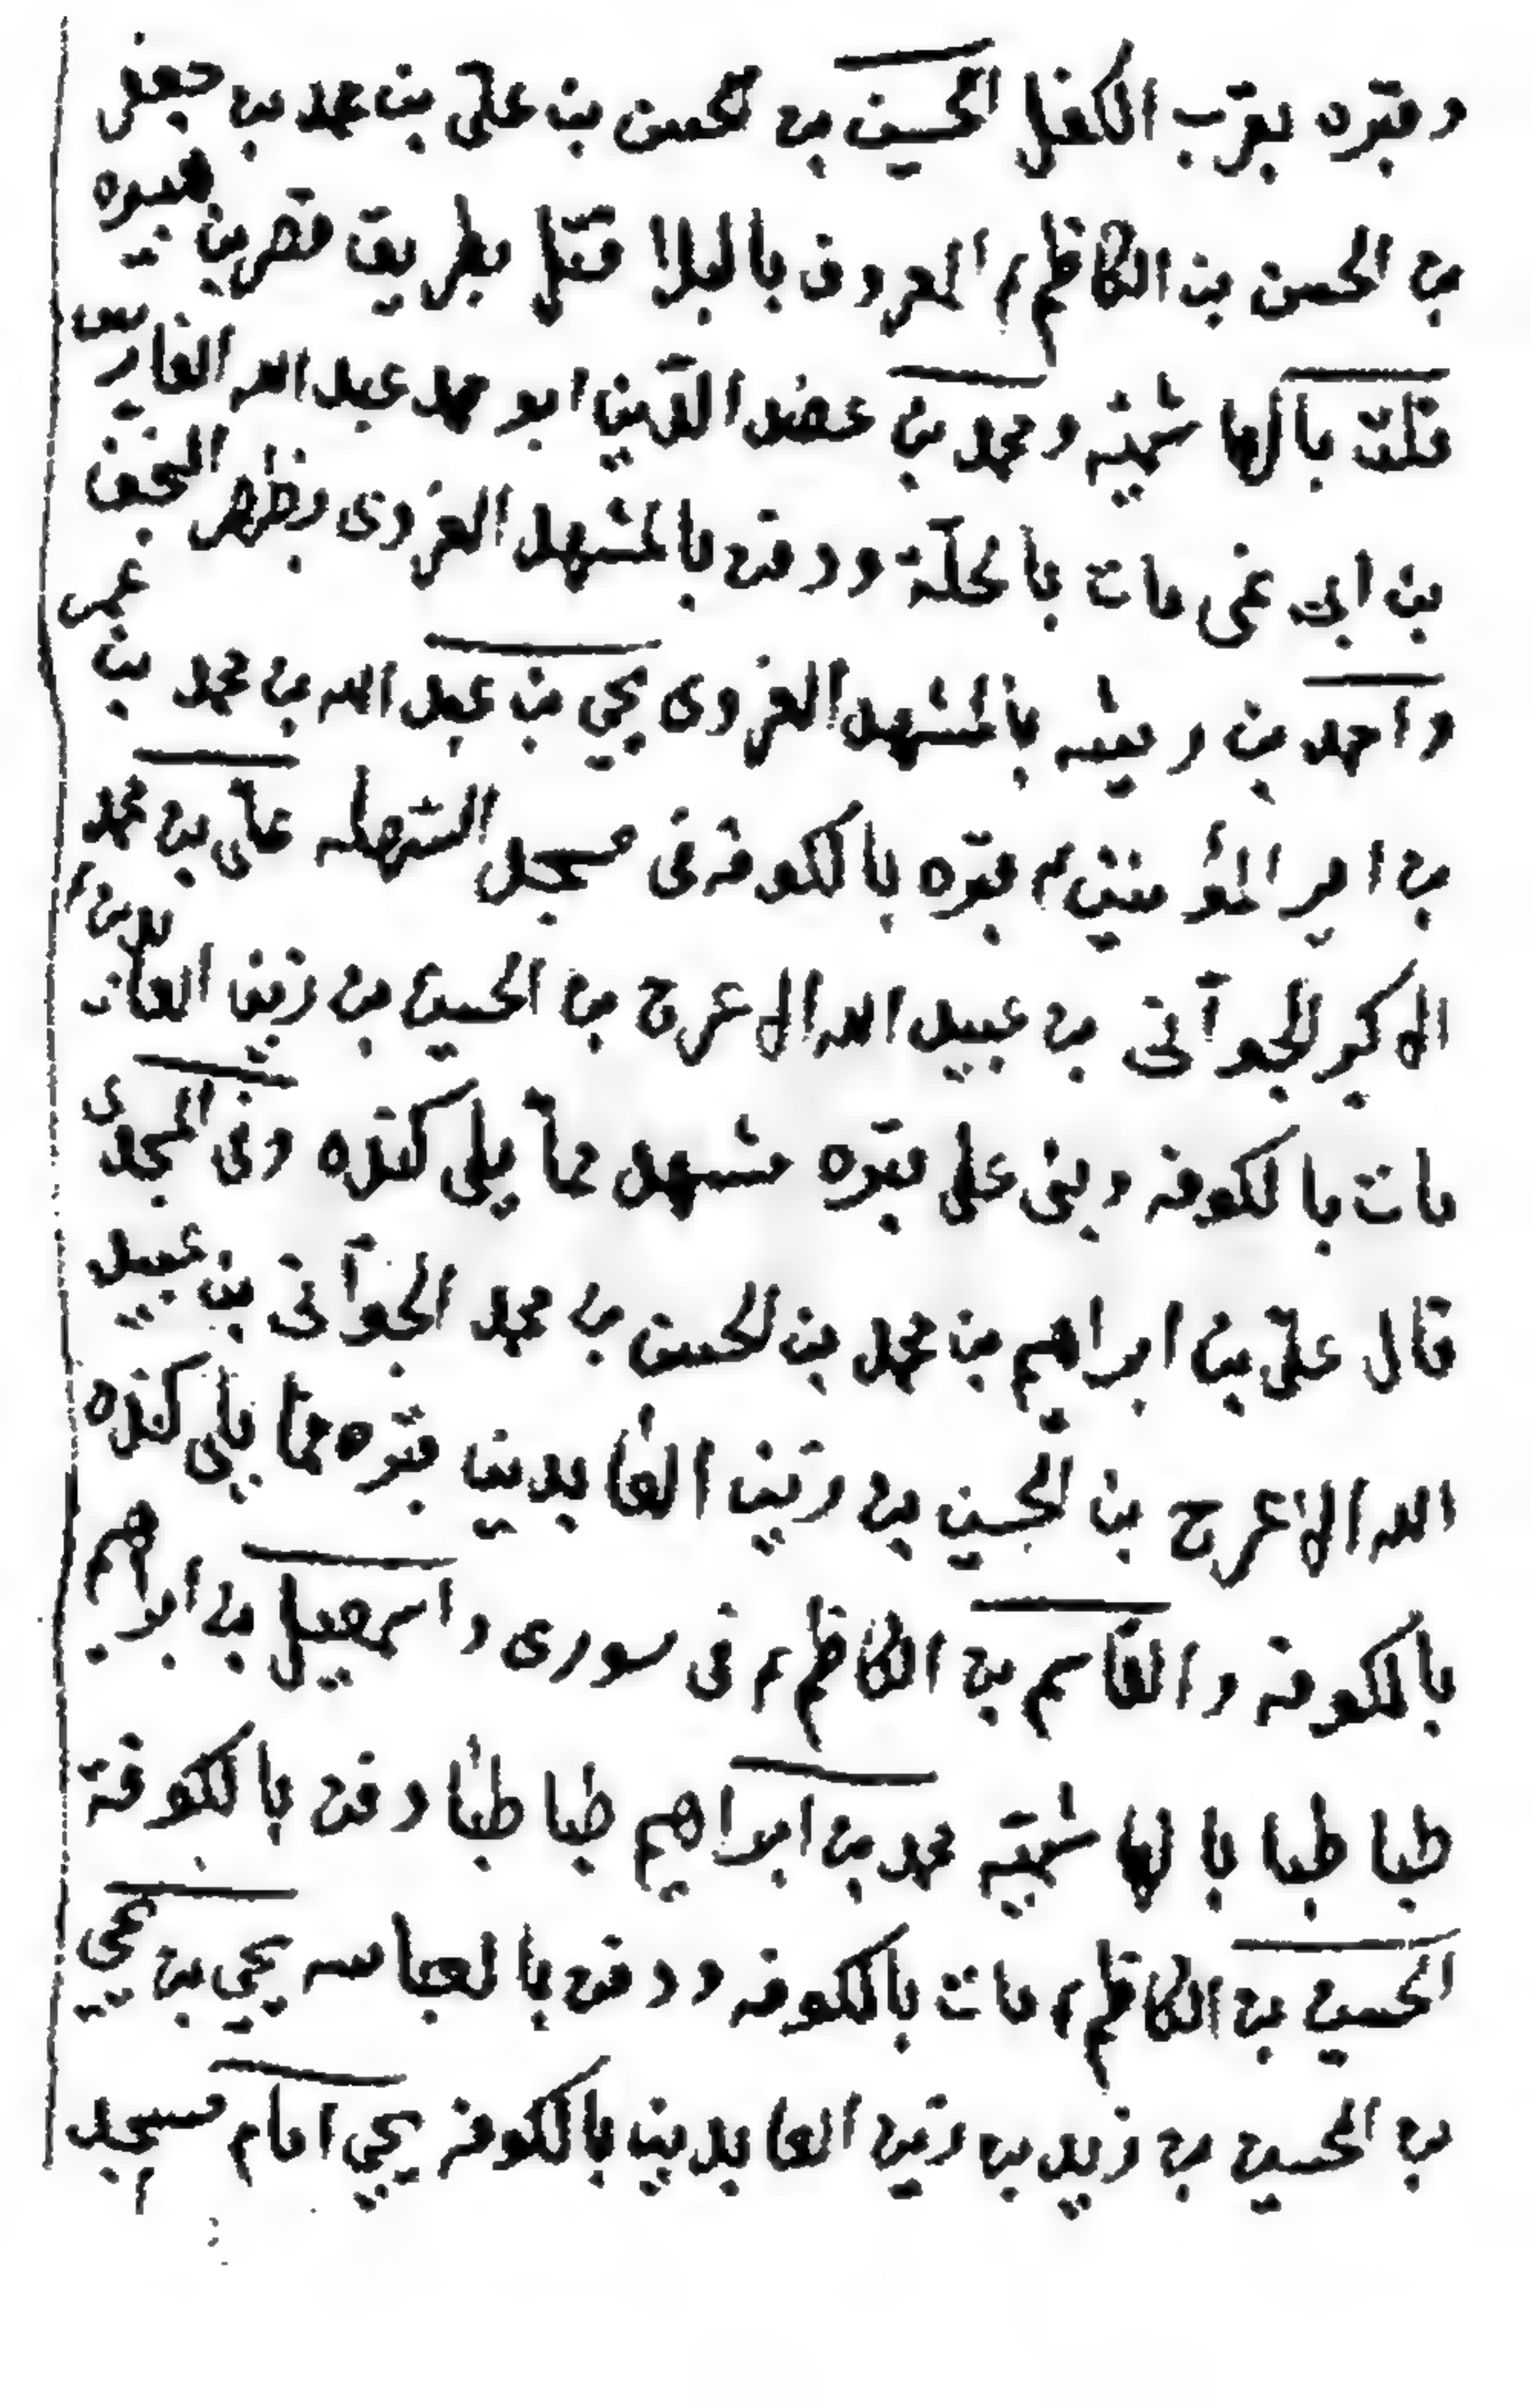 وقبره بقرب الكفل الحسين بن الحسن بن علي بن محمد بن جعفر
بن الحسن بن الكاظم ع المعروف بالبلا قتل بطريق قصر بن هبيره
قلت بالهاشميّه ومحمد بن عضد الدّين ابو محمد عبد الله الفارس
بن ابي نمى مات بالحلّة ودفن بالمشهد الغروى بظهر النجف
واحمد بن رميثه بالمشهد الغروى يحيى بن عبد الله بن محمد بن عمر
بن امير المؤمنين ع قبره بالكوفه فى مسجد السّهله علي بن محمد
الاكبر الجوّانى بن عبيد الله الاعرج بن الحسين بن زين العابدين ع
مات بالكوفه وبنى على قبره مشهد ممّا يلى كنده وفى المجدى
قال عليّ بن ابراهيم بن محمد بن الحسن بن محمد الجوّانى بن عبيد
الله الاعرج بن الحسين بن زين العابدين قبره مما يلى كنده
بالكوفه والقاسم بن الكاظم ع فى سورى واسمعيل بن ابراهيم
طباطبا بالهاشميّه محمد بن ابراهيم طباطبا دفن بالكوفة
الحسين بن الكاظم ع مات بالكوفه ودفن بالعباسه يحيى بن يحيى
بن الحسين بن زيد بن زين العابدين بالكوفه يحيى امام مسجد